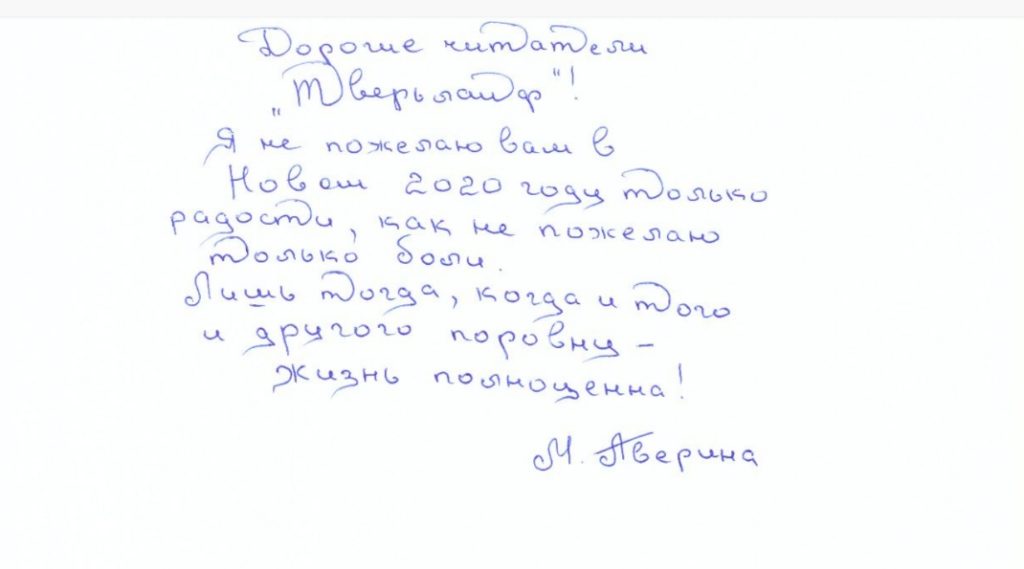 Дорогие читатели
„Тверьлайф"!
Я не пожелаю вам в
Новом 2020 году только
радости, как не пожелаю
только боли.
Лишь тогда, когда и того
и другого поровну –
жизнь полноценна!
М. Аверина